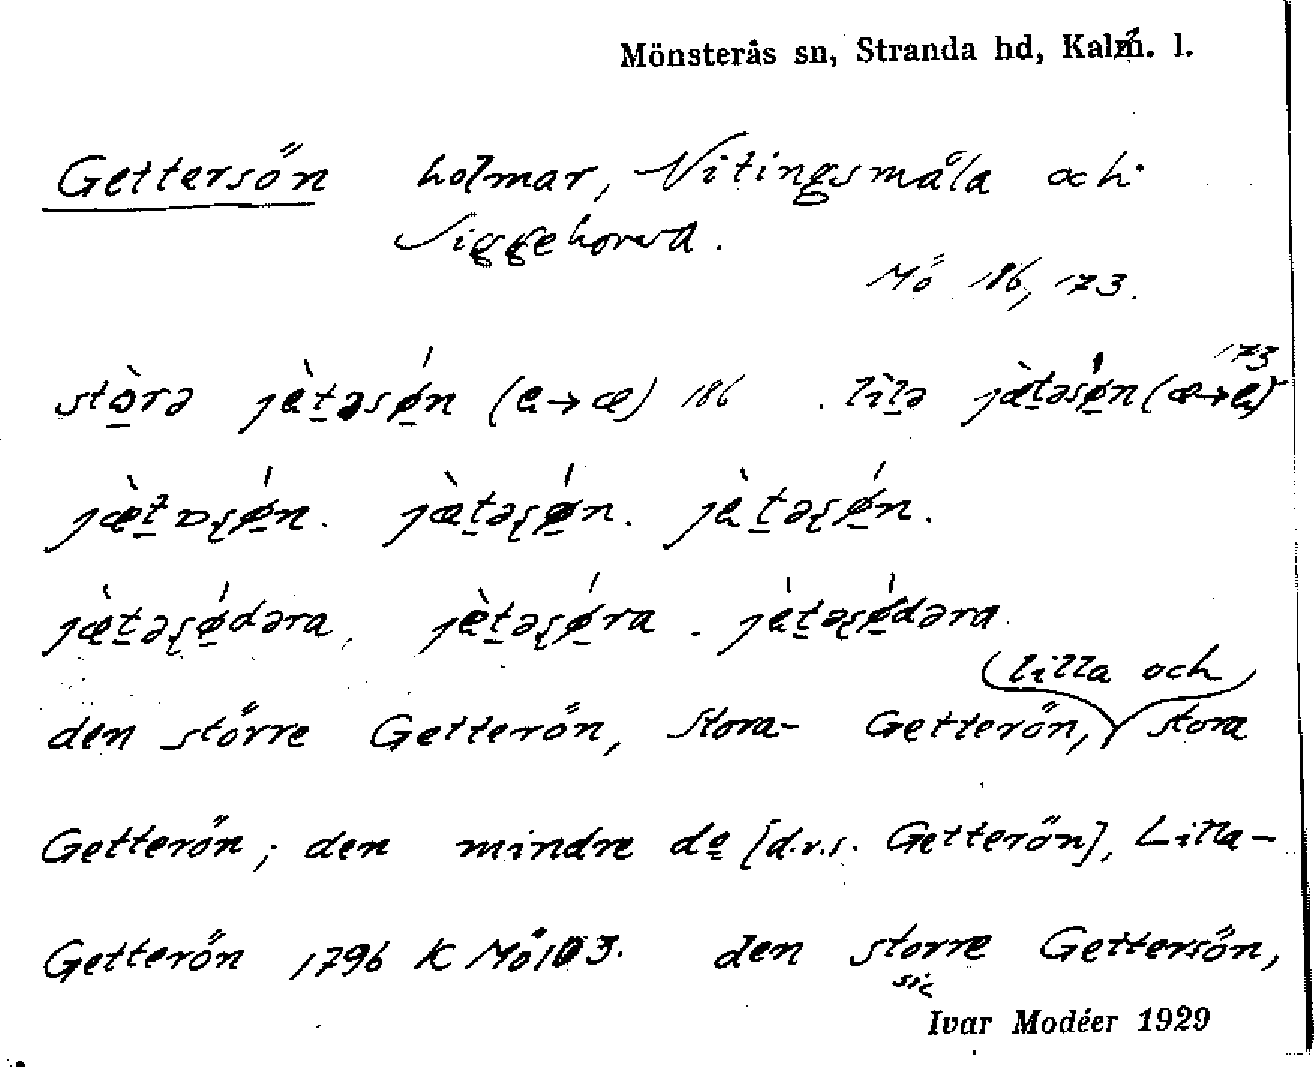 Mönsterås sn, Stranda hd, Kalm. l.
Gettersön holmar, Nitingsmåla och
Siggehorva.
Mö 186, 173.
173
stòrə jètəsǿn (e→æ) 186 . lìlə jæ̀təsǿn (æ→e)
jæ̀tɒʂǿn. jæ̀təʂǿn. jètəʂǿn.
jæ̀təʂǿdəra, jètəʂǿra . jètəʂǿdəra.
(lilla och)
den större Getterön, Stora- Getterön, stora
Getterön; den mindre do [d.v.s. Getterön], Lilla-
Getterön 1796 K Mö 103. den storre Gettersön,
sic
Ivar Modéer 1929